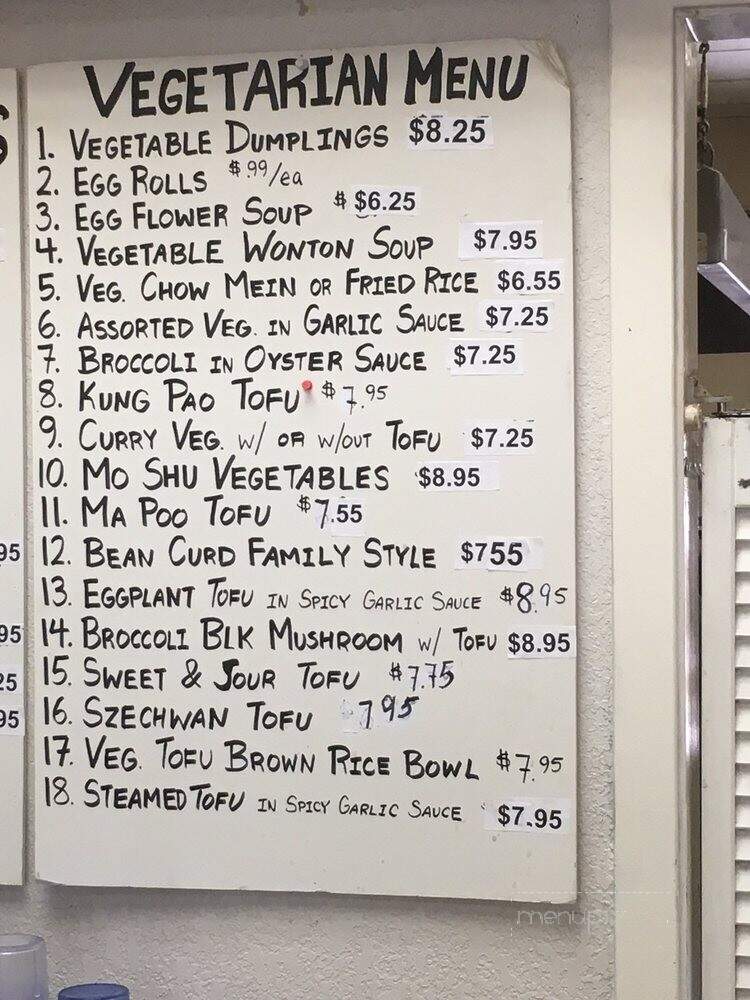 VEGETARIAN MENU
1. VEGETABLE DUMPLINGS $8.25
2. EGG ROLLS $.99/ea
3. EGG FLOWER SOUP $ $6.25
4. VEGETABLE WONTON SOUP $7.95
5. VEG. CHOW MEIN OR FRIED RICE $6.55
6. ASSORTED VEG. IN GARLIC SAUCE $7.25
7. BROCCOLI IN OYSTER SAUCE $7.25
8. KUNG PAO TOFU $7.95
9. CURRY VEG. w/ OR w/OUT TOFU $7.25
10. MO SHU VEGETABLES $8.95
11. MA POO TOFU $7.55
95 12. BEAN CURD FAMILY STYLE $755
13. EGGPLANT TOFU IN SPICY GARLIC SAUCE $8.95
95 14. BROCCOLI BLK MUSHROOM w/ TOFU $8.95
25 15. SWEET & SOUR TOFU $7.75
95 16. SZECHWAN TOFU 7.95
17. VEG. TOFU BROWN RICE BOWL $7.95
18. STEAMED TOFU IN SPICY GARLIC SAUCE $7.95